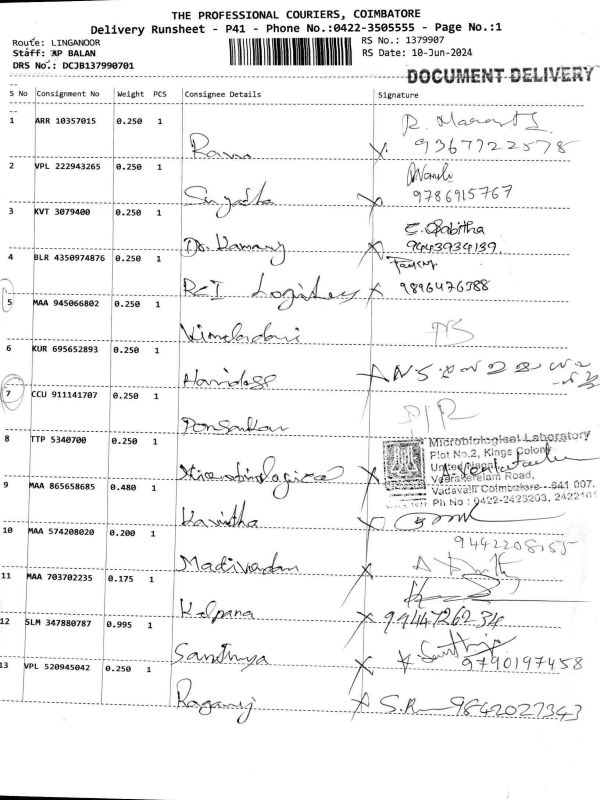 THE PROFESSIONAL COURIERS, COIMBATORE
Delivery Runsheet - P41 - Phone No.:0422-3505555 - Page No.:1
Route: LINGANOOR RS No.: 1379907
Staff: AP BALAN RS Date: 10-Jun-2024
DRS No.: DCJB137990701
DOCUMENT DELIVERY
S No Consignment No Weight PCS Consignee Details Signature
1 ARR 10357015 0.250 1
Ram 9367722578
2 VPL 222943265 0.250 1
Sujatha 9786915767
3 KVT 3079400 0.250 1 E. Sabitha
9443934139
4 BLR 4350974876 0.250 1
Logistics 9896476588
5 MAA 945066802 0.250 1
6 KUR 695652893 0.250 1
Haridass
7 CCU 911141707 0.250 1
8 TTP 5340700 0.250 1
Microbiological Laboratory
Plot No.2, Kings Colony
United Nagar
Veerakeralam Road,
Vadavalli Coimbatore - 641 007.
Ph No : 0422-2423203, 2422101
Since 1977
Microbiological
9 MAA 865658685 0.480 1
Kavitha
10 MAA 574208020 0.200 1
Madivadan
11 MAA 703702235 0.175 1
Kalpana 9944726234
12 SLM 347880787 0.995 1
Santhiya 9790197458
13 VPL 520945042 0.250 1
9842027343